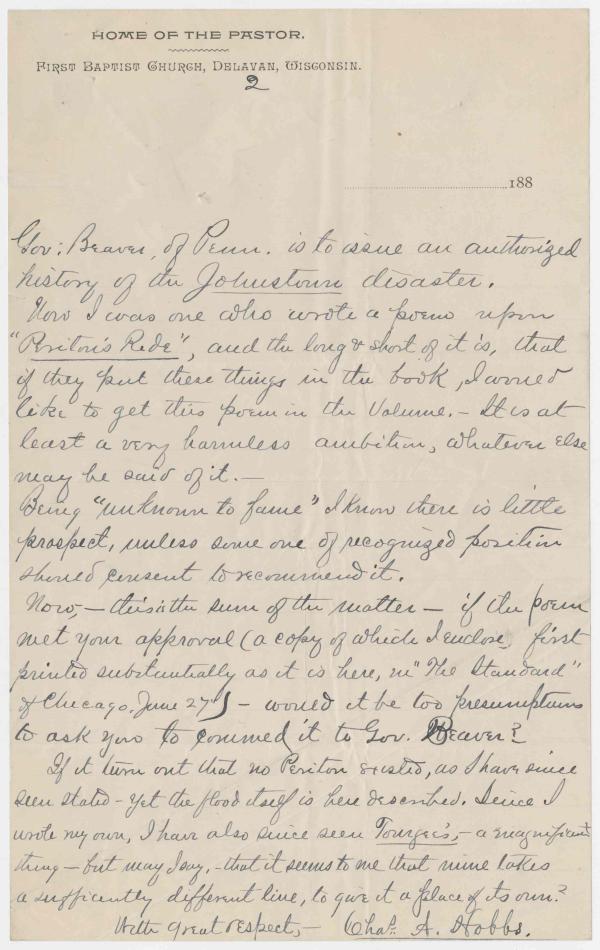 HOME OF THE PASTOR.
FIRST BAPTIST CHURCH, DELAVAN, WISCONSIN.
2
188
Gov: Beaver, of Penn. is to issue an authorized
history of the Johnstown disaster.
Now I was one who wrote a poem upon
"Periton's Ride", and the long & short of it is, that
if they put these things in the book, I would
like to get this poem in the Volume. - It is at
least a very harmless ambition, whatever else
may be said of it. -
Being "unknown to fame" I know there is little
prospect, unless some one of recognized position
should consent to recommend it.
Now, - this is the sum of the matter - if the poem
met your approval (a copy of which I enclose, first
printed substantially as it is here, in "The Standard"
of Chicago, June 27) - would it be too presumptuous
to ask you to commed it to Gov. Beaver?
If it turn out that no Periton existed, as I have since
seen stated - yet the flood itself is here described. Since I
wrote my own, I have also since seen Tourgee's, - a magnificent
thing - but may I say, - that it seems to me that mine takes
a sufficently different line, to give it a place of its own?
With great respect, - Chas. A. Hobbs.